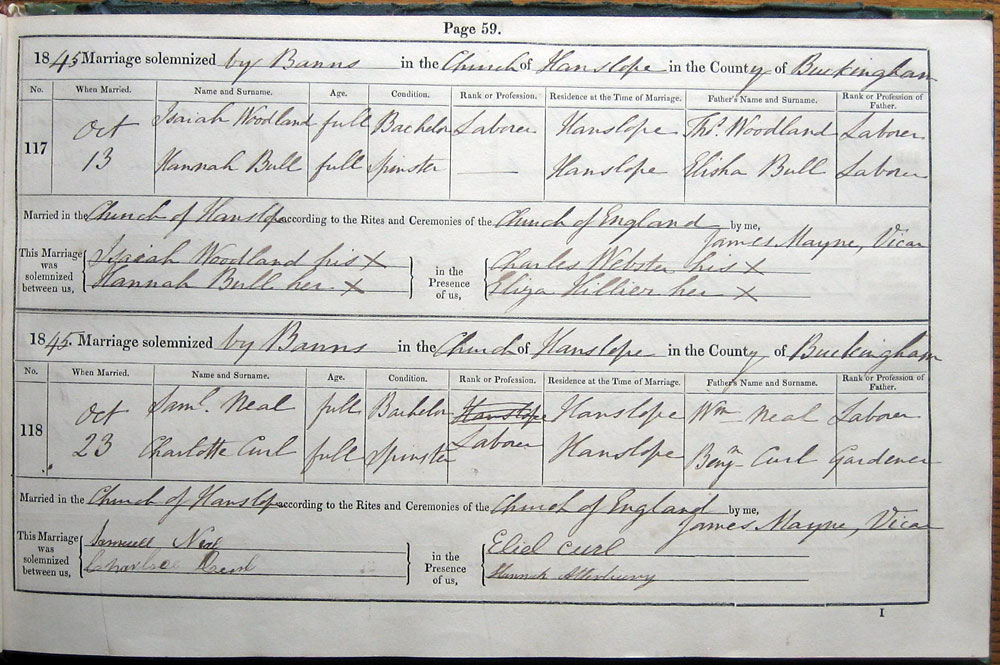 Page 59.
1845 Marriage solemnized by Banns in the Church of Hanslope in the County of Buckingham
No. When Married. Name and Surname. Age. Condition. Rank or Profession. Residence at the Time of Marriage. Father's Name and Surname. Rank or Profession of Father.
117 Oct 13 Isaiah Woodland full Bachelor Laborer Hanslope Thos. Woodland Laborer
Hannah Bull full Spinster — Hanslope Elisha Bull Laborer
Married in the Church of Hanslope according to the Rites and Ceremonies of the Church of England by me,
James Mayne, Vicar
This Marriage was solemnized between us, Isaiah Woodland his X in the Presence of us, Charles Webster his X
Hannah Bull her X Eliza Hillier her X
1845. Marriage solemnized by Banns in the Church of Hanslope in the County of Buckingham
No. When Married. Name and Surname. Age. Condition. Rank or Profession. Residence at the Time of Marriage. Father's Name and Surname. Rank or Profession of Father.
118 Oct 23 Saml. Neal full Bachelor Hanslope Laborer Hanslope Wm Neal Laborer
Charlotte Curl full Spinster Hanslope Benjn Curl Gardener
Married in the Church of Hanslope according to the Rites and Ceremonies of the Church of England by me,
James Mayne, Vicar
This Marriage was solemnized between us, Samuell Neal in the Presence of us, Elied Curl
Hannah Attenbury
I